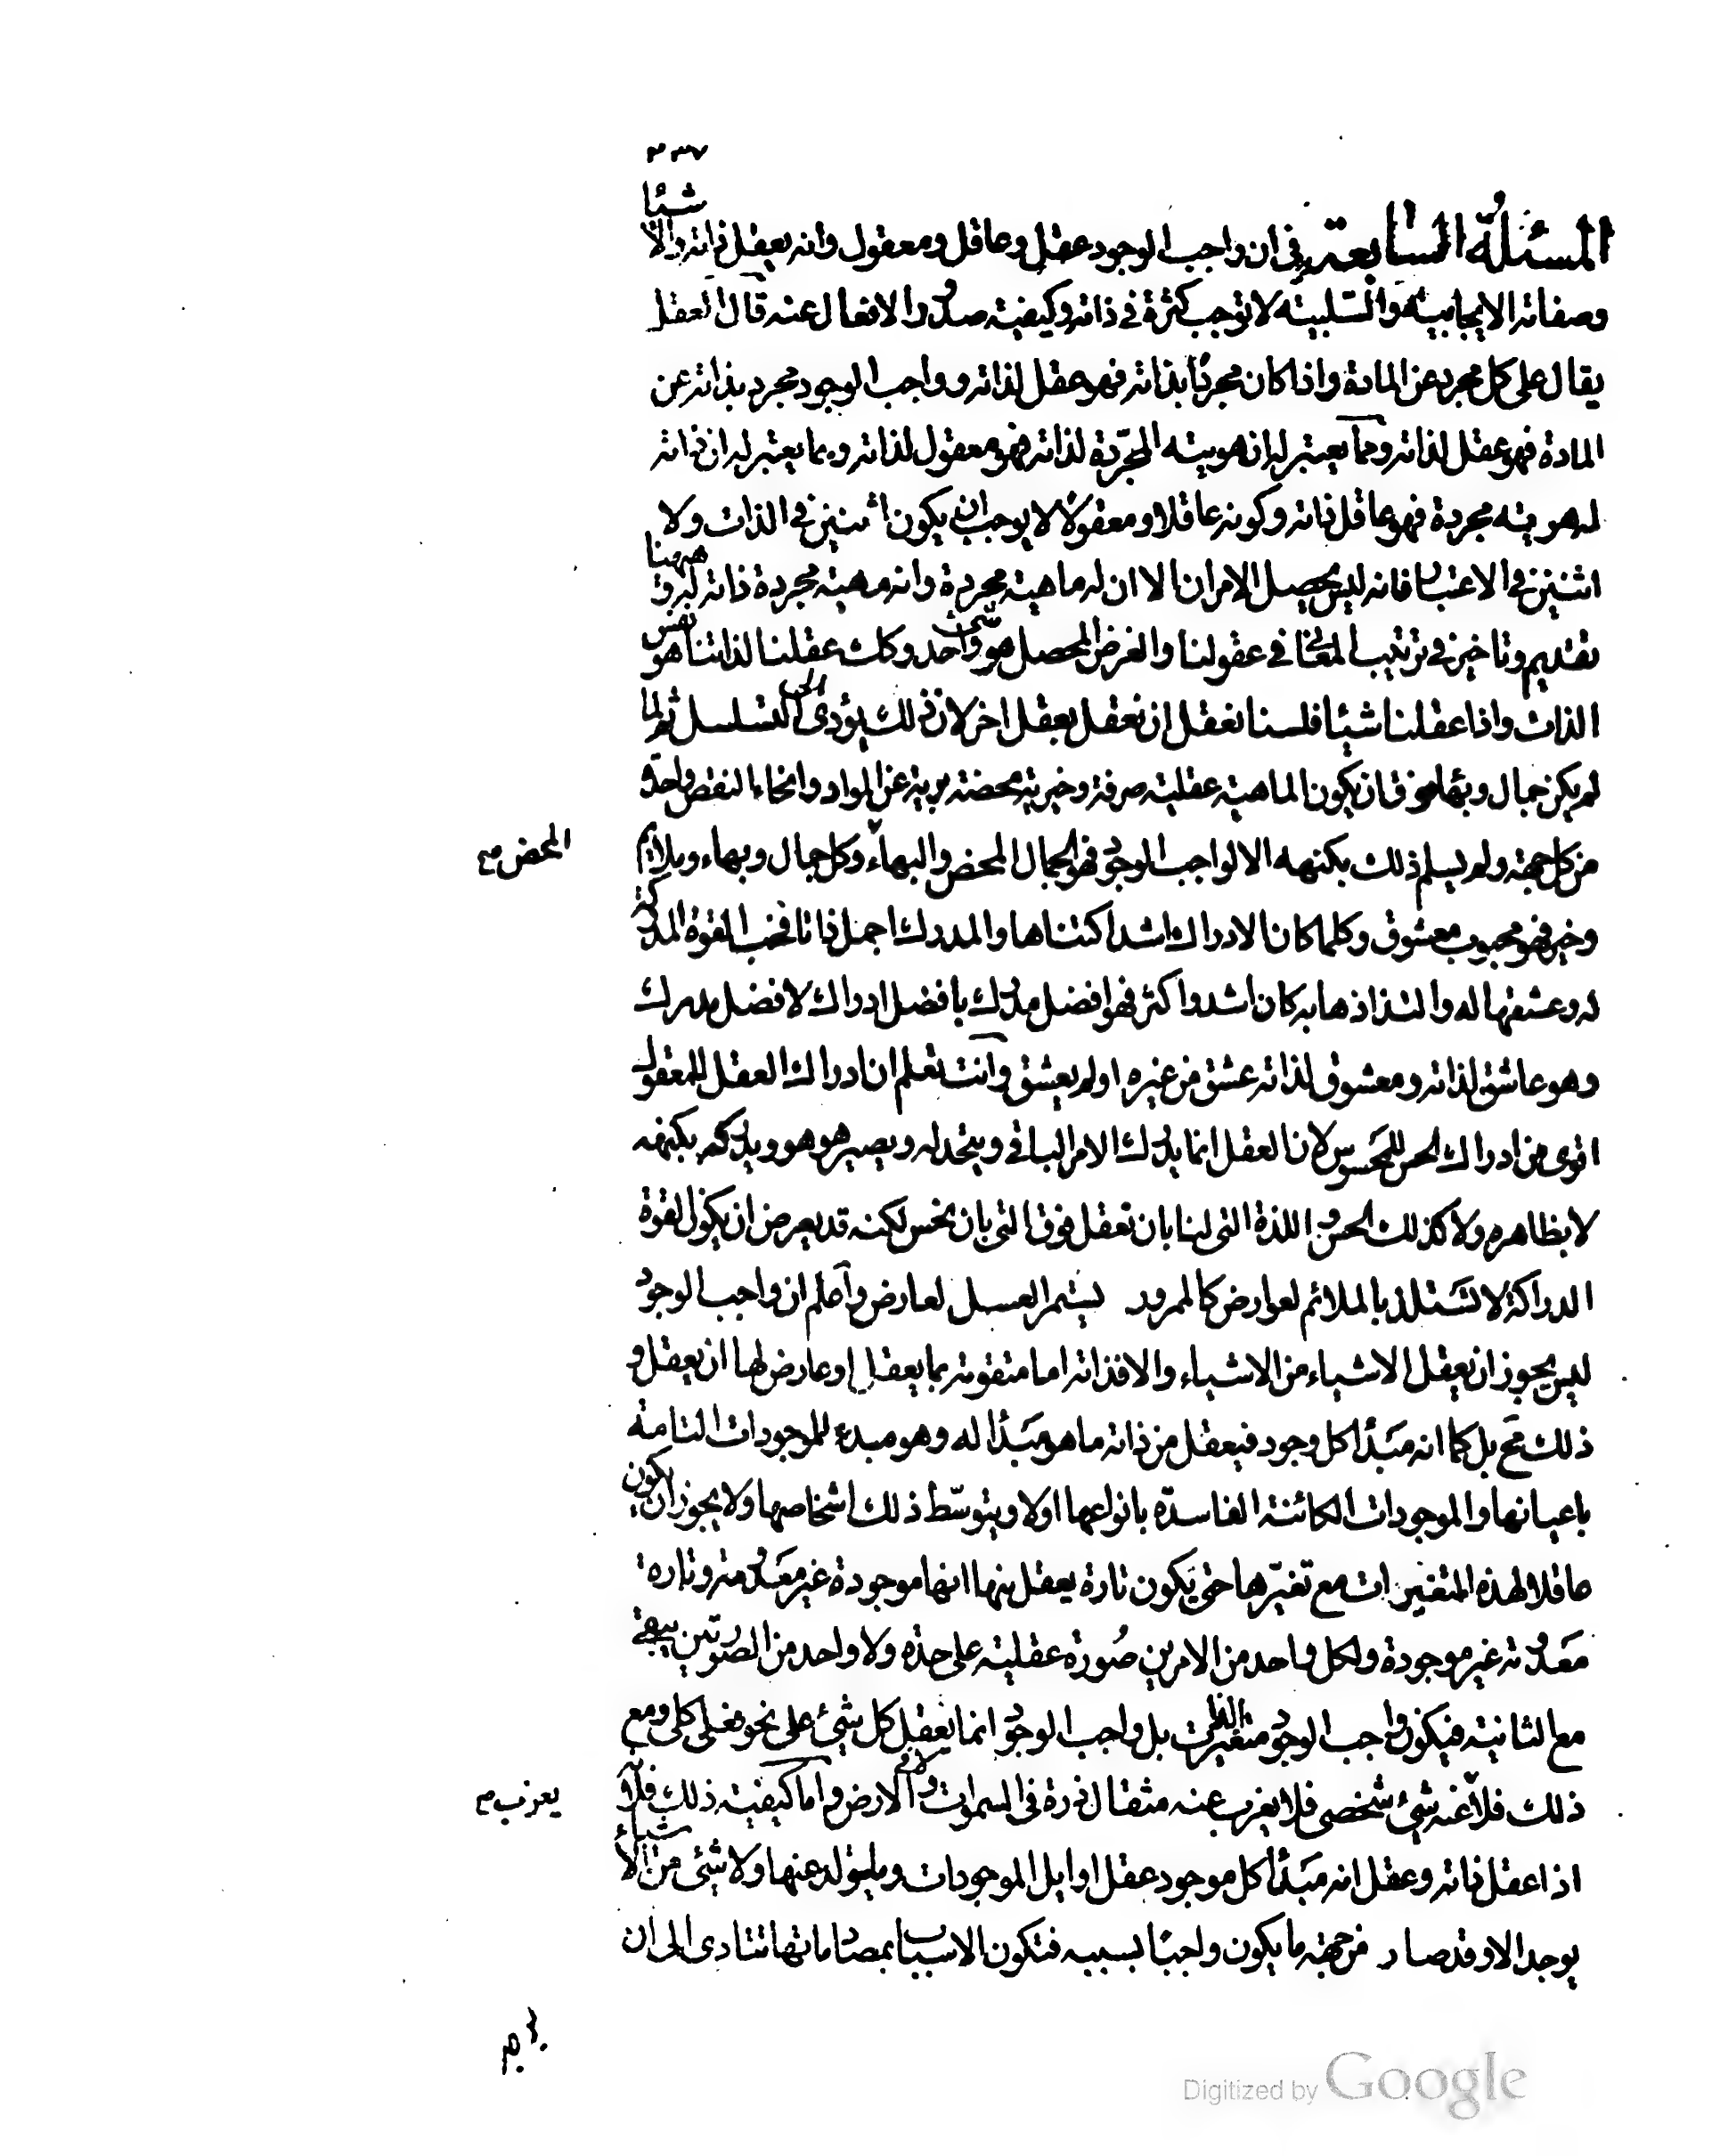 ٣٣٧
المسئلة السابعة في ان واجب الوجود عقل وعاقل ومعقول وانه يعقل ذاته والاشيئا
وصفاته الايجابية والسلبية لا توجب كثرة في ذاته وكيفية صدور الافعال عنه قال العقل
يقال على كل مجرد عن المادة واذا كان مجردا بذاته فهو عقل لذاته وواجب الوجود مجرد بذاته عن
المادة فهو عقل لذاته وبما يعتبر له ان هويته المجردة لذاته فهو معقول لذاته وبما يعتبر له ان ذاته
له هوية مجردة فهو عاقل ذاته وكونه عاقلا ومعقولا لا يوجب ان يكون اثنين في الذات ولا
اثنين في الاعتبار فانه ليس يحصل الامران الا ان له ماهية مجردة وانه مهية مجردة ذاته له وههنا
تقديم وتاخير في ترتيب المعاني في عقولنا والغرض المحصل هو شئ واحد وكك عقلنا لذاتنا هو نفس
الذات واذا عقلنا شيئا فلسنا نعقل ان نعقل بعقل اخر لان ذلك يؤدى الى التسلسل ثم لما
لم يكن جمال وبهاء فوق ان يكون الماهية عقلية صرفة وخيرية محضة برية عن المواد وانحاء النقص واحدة
من كل جهة ولم يسلم ذلك بكنهه الا لواجب الوجود فهو الجمال المحض والبهاء وكل جمال وبهاء وملايم
المحض صح
وخير فهو محبوب معشوق وكلما كان الادراك اشد اكتناها والمدرك اجمل ذاتا فحب القوة المدركة
له وعشقها له والتذاذها به كان اشد واكثر فهو افضل مدرك بافضل ادراك لافضل مدرك
وهو عاشق لذاته ومعشوق لذاته عشق من غيره اولم يعشق وانت تعلم ان ادراك العقل للمعقول
اقوى من ادراك الحس للمحسوس لان العقل انما يدرك الامر الباقى ويتحد له ويصير هو هو ويدركه بكنهه
لا بظاهره ولا كذلك الحس واللذة التي لنا بان نعقل فوق التي بان نحس لكنه قد يعرض ان يكون القوة
الدراكة لا تستلذ بالملائم لعوارض كالممرور يستمر العسل لعارض واعلم ان واجب الوجود
ليس يجوز ان يعقل الاشياء من الاشياء والا فذاته اما متقومة بما يعقل او عارض لها ان يعقل و
ذلك مح بل كما انه مبدأ كل وجود فيعقل من ذاته ما هو مبدأ له وهو مبدء للموجودات التامة
باعيانها والموجودات الكائنة الفاسدة بانواعها اولا وبتوسط ذلك اشخاصها ولا يجوز ان يكون
عاقلا لهذه المتغيرات مع تغيرها حتى يكون تارة يعقل منها انها موجودة غير معدومة وتارة
معدومة غير موجودة ولكل واحد من الامرين صورة عقلية على حدة ولا واحد من الصورتين يبقى
مع الثانية فيكون واجب الوجود متغير الذات بل واجب الوجود انما يعقل كل شئ على نحو فعلى كلى ومع
ذلك فلا عنه شئ شخصى فلا يعزب عنه مثقال ذرة في السموات ولا في الارض واما كيفية ذلك فلانه
يعزب صح
اذا عقل ذاته وعقل انه مبدأ كل موجود عقل اوايل الموجودات وما يتولد عنها ولا شئ من الاشياء
يوجد الا وقد صار من جهة ما يكون واجبا بسببه فتكون الاسباب بمصادماتها تتادى الى ان
Digitized by Google